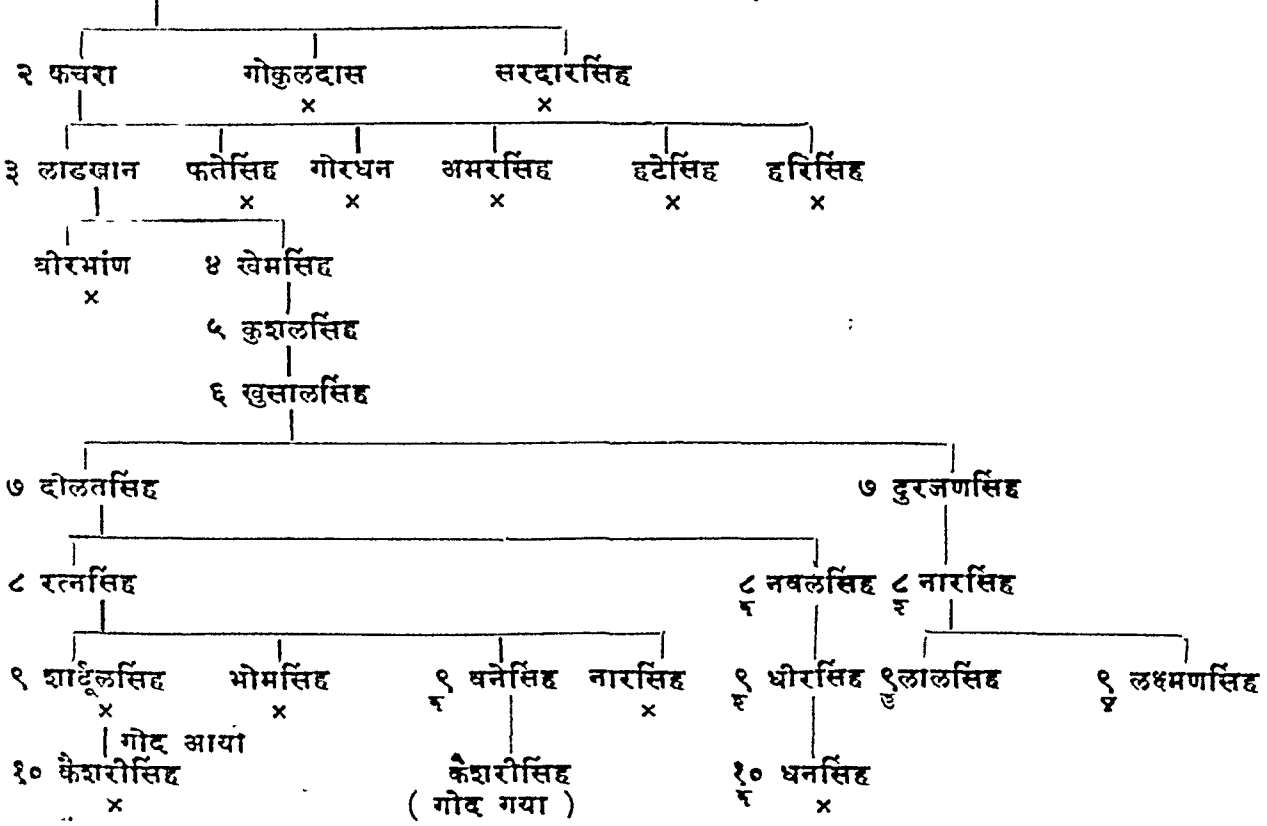 २ कचरा गोकुलदास सरदारसिंह
× ×
३ लाडखान फतेसिंह गोरधन अमरसिंह हटेसिंह हरिसिंह
× × × × ×
वीरभांण ४ खेमसिंह
×
५ कुशलसिंह
६ खुसालसिंह
७ दोलतसिंह ७ दुरजणसिंह
८ रत्नसिंह ८ नवलसिंह ८ नारसिंह
९ शार्दूलसिंह भोमसिंह ९ वनेसिंह नारसिंह ९ धीरसिंह ९ लालसिंह ९ लक्ष्मणसिंह
× × ×
गोद आया
१० कैशरीसिंह कैशरीसिंह १० धनसिंह
× ( गोद गया ) ×